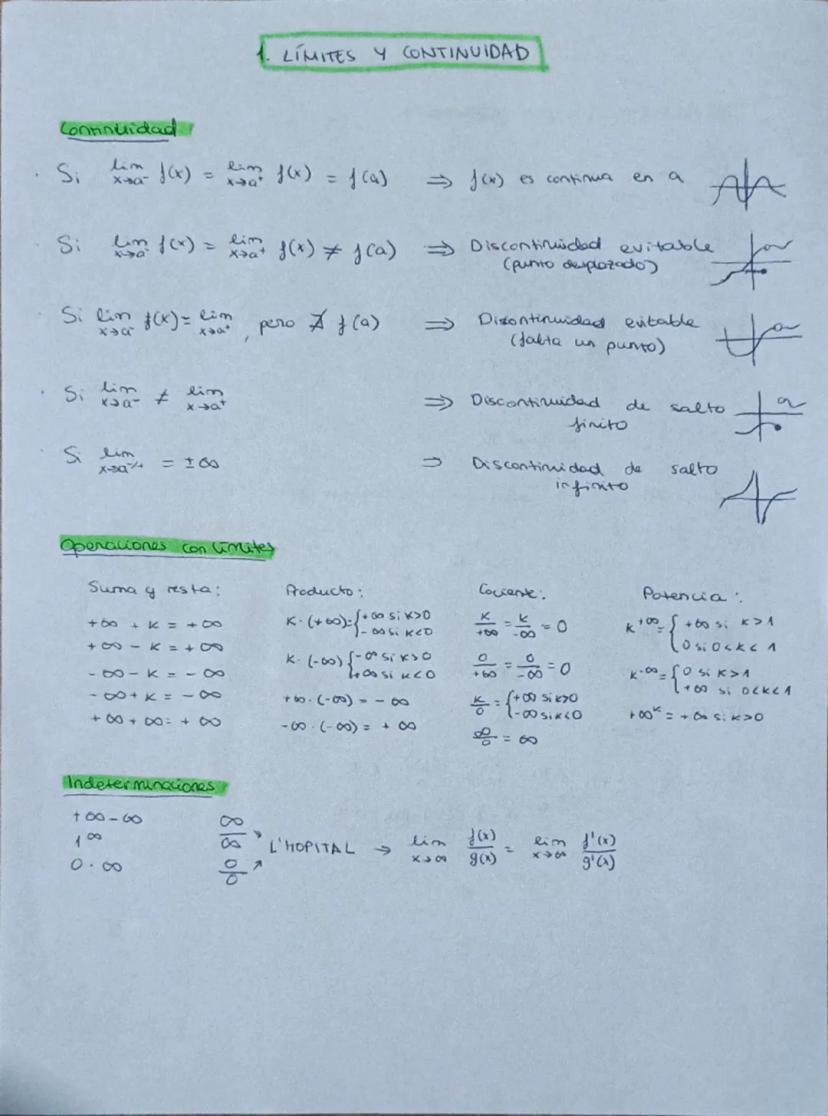 1. LÍMITES Y CONTINUIDAD
Continuidad:
· Si lim x→a⁻ f(x) = lim x→a⁺ f(x) = f(a) ⇒ f(x) es continua en a
· Si lim x→a⁻ f(x) = lim x→a⁺ f(x) ≠ f(a) ⇒ Discontinuidad evitable
(punto desplazado)
· Si lim x→a⁻ f(x) = lim x→a⁺, pero ∄ f(a) ⇒ Discontinuidad evitable
(falta un punto)
· Si lim x→a⁻ ≠ lim x→a⁺ ⇒ Discontinuidad de salto
finito
· Si lim x→a⁻/⁺ = ±∞ ⇒ Discontinuidad de salto
infinito
Operaciones con límites
Suma y resta:
+∞ + K = +∞
+∞ - K = +∞
-∞ - K = -∞
-∞ + K = -∞
+∞ + ∞ = +∞
Producto:
K · (+∞) = { +∞ si K>0
-∞ si K<0
K · (-∞) { -∞ si K>0
+∞ si K<0
+∞ · (-∞) = -∞
-∞ · (-∞) = +∞
Cociente:
K/+∞ = K/-∞ = 0
0/+∞ = 0/-∞ = 0
K/0 = { +∞ si K>0
-∞ si K<0
∞/0 = ∞
Potencia:
K^+∞ = { +∞ si K>1
0 si 0<K<1
K^-∞ = { 0 si K>1
+∞ si 0<K<1
+∞^K = +∞ si K>0
Indeterminaciones
+∞ - ∞
1^∞
0 · ∞
∞/∞
0/0
L'HOPITAL → lim x→∞ f(x)/g(x) = lim x→∞ f'(x)/g'(x)